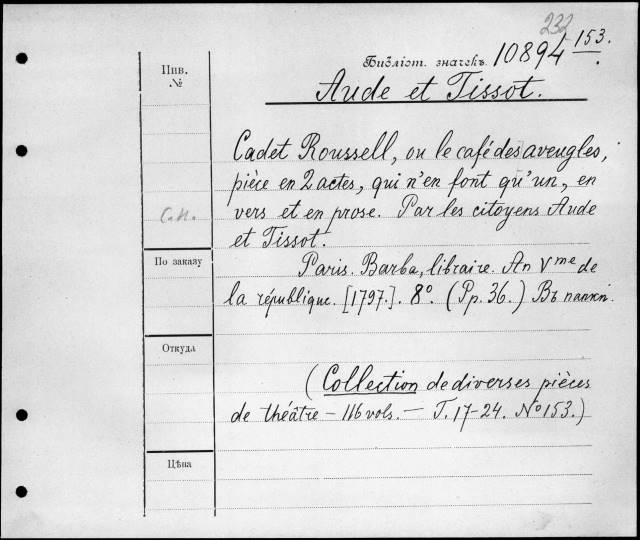 232
Библіот. значекъ 10894 153.
Инв.
№
Aude et Tissot.
Cadet Roussell, ou le café des aveugles,
pièce en 2 actes, qui n'en font qu'un, en
vers et en prose. Par les citoyens Aude
et Tissot.
С.П.
По заказу
Paris. Barba, libraire. An Vme de
la république. [1797.]. 8º. (Pp. 36.) Въ папкѣ.
Откуда
(Collection de diverses pièces
de théâtre – 116 vols. – T. 17-24. Nº 153.)
Цѣна